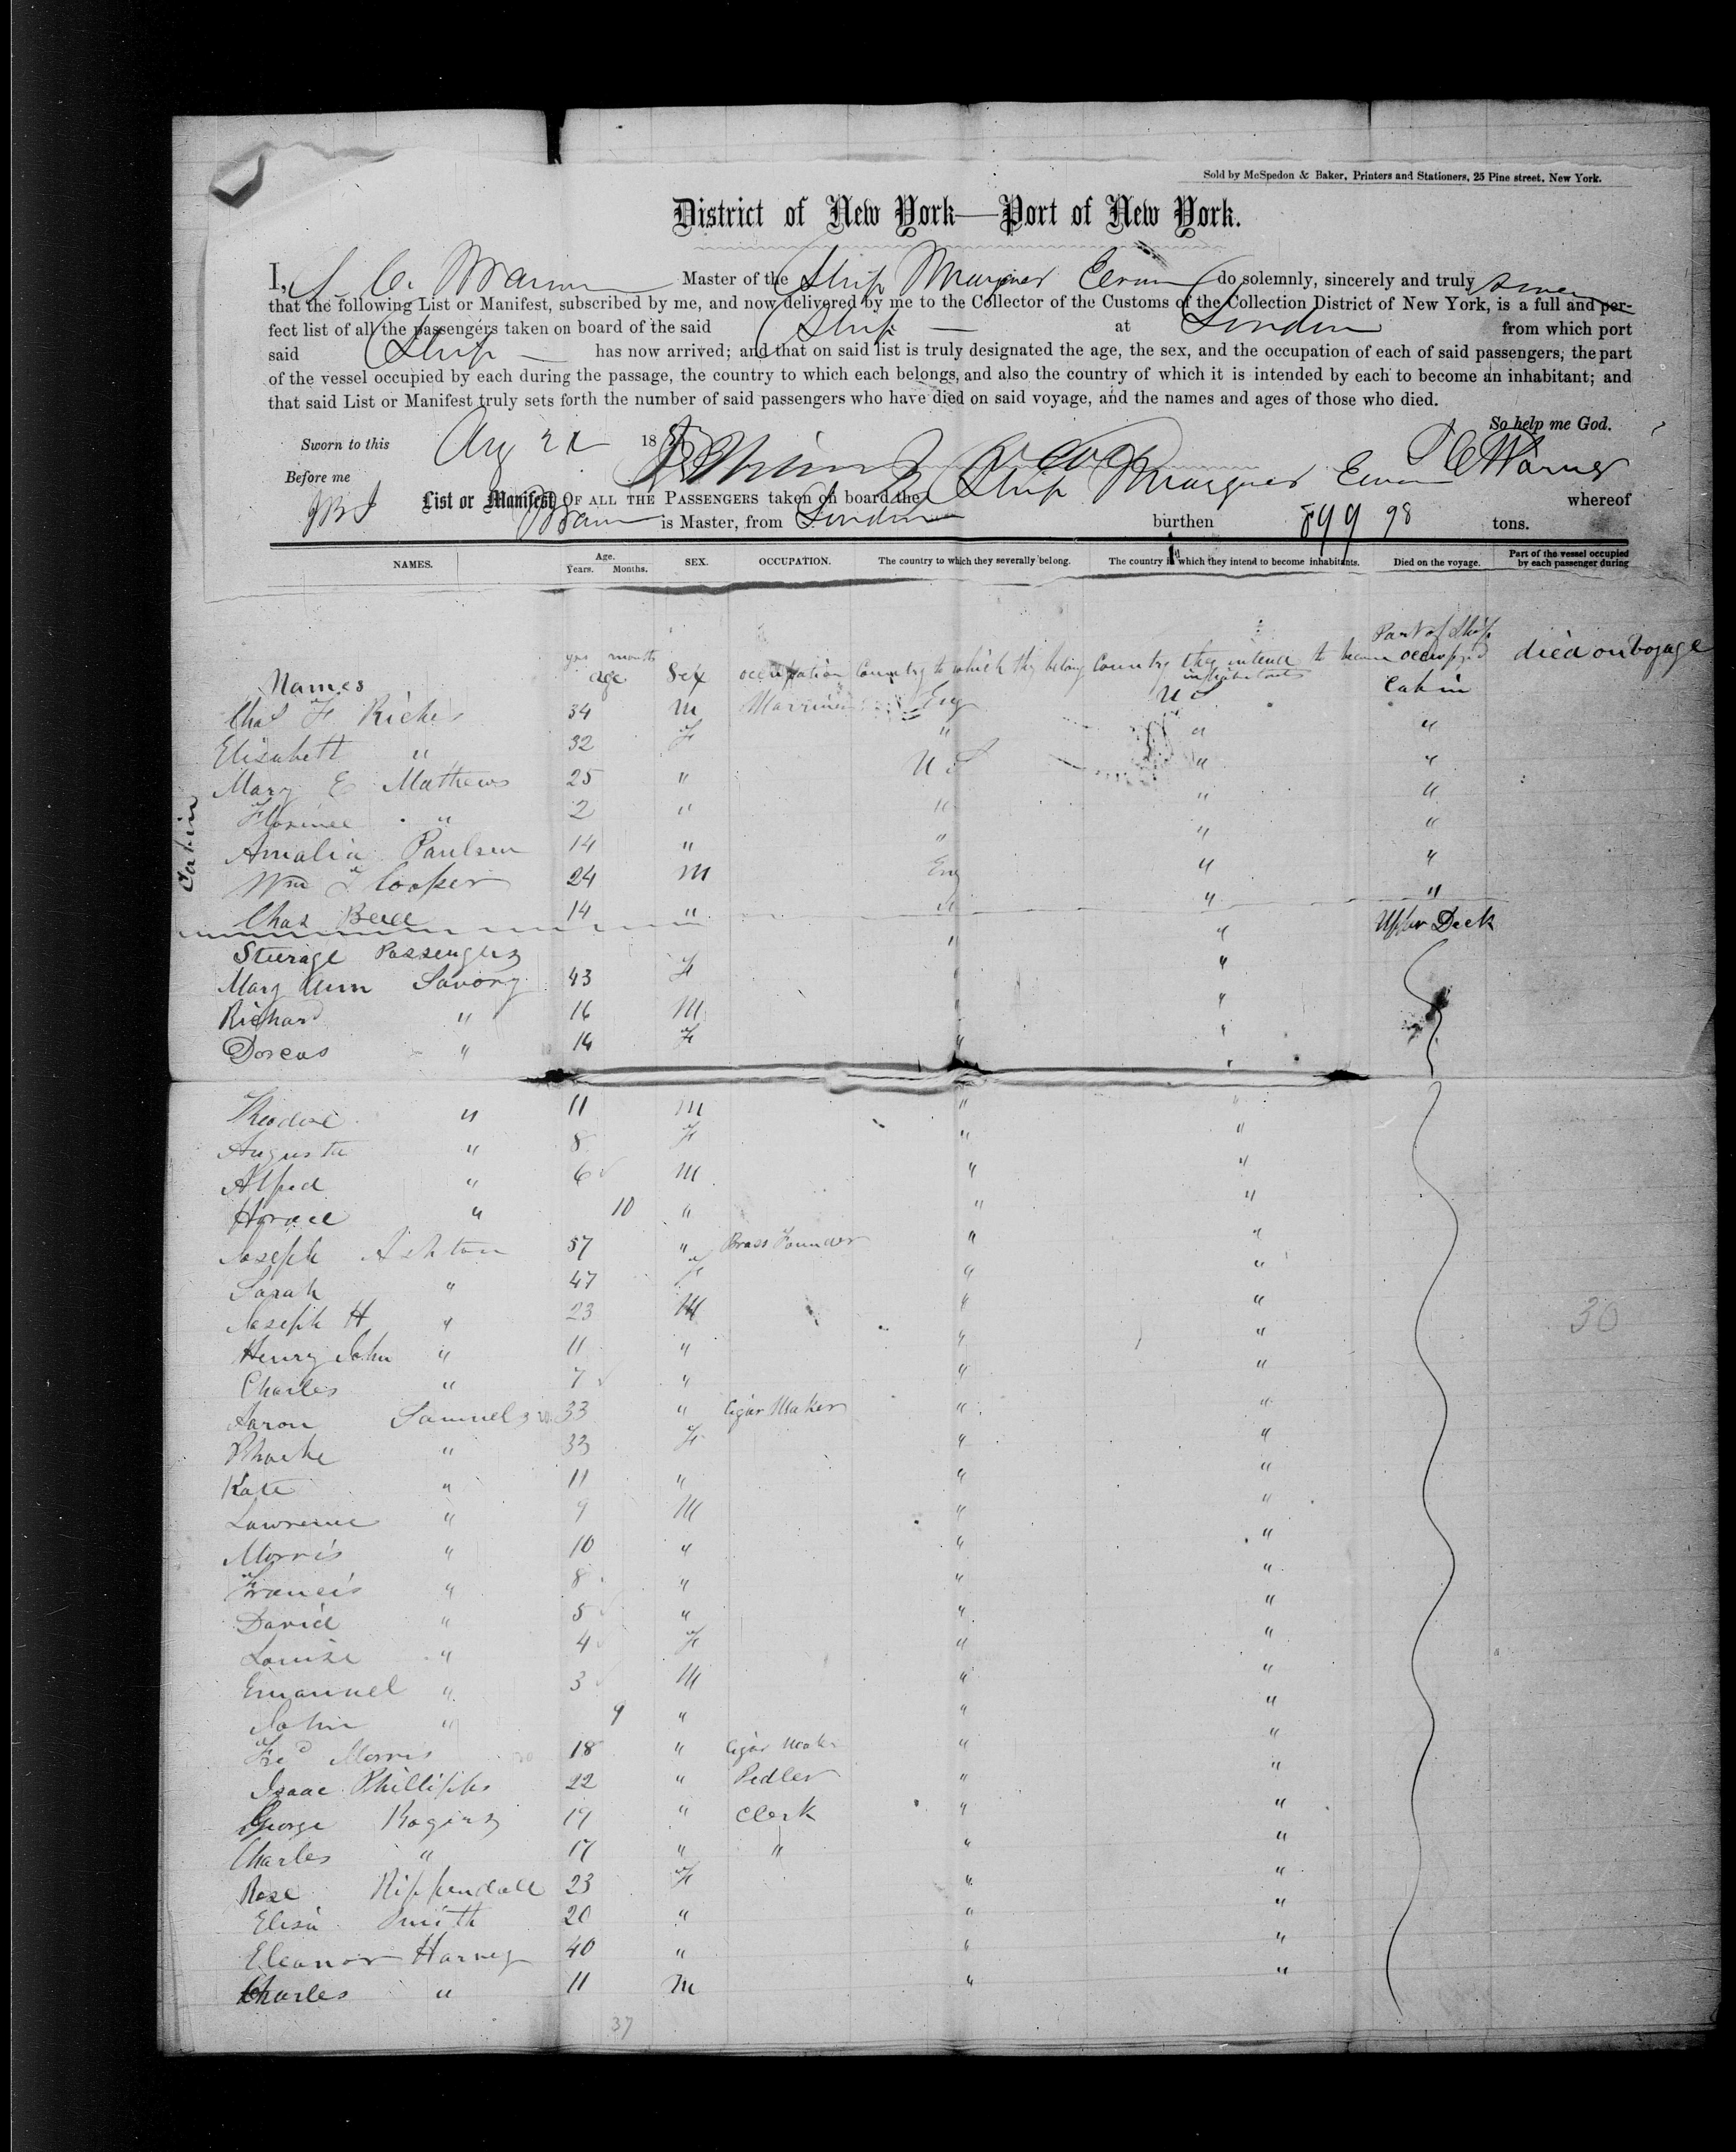 Sold by McSpedon & Baker, Printers and Stationers, 25 Pine street, New York.
District of New York—Port of New York.
I, Master of the Ship do solemnly, sincerely and truly swear
that the following List or Manifest, subscribed by me, and now delivered by me to the Collector of the Customs of the Collection District of New York, is a full and per-
fect list of all the passengers taken on board of the said Ship at London from which port
said Ship has now arrived; and that on said list is truly designated the age, the sex, and the occupation of each of said passengers, the part
of the vessel occupied by each during the passage, the country to which each belongs, and also the country of which it is intended by each to become an inhabitant; and
that said List or Manifest truly sets forth the number of said passengers who have died on said voyage, and the names and ages of those who died.
So help me God.
Sworn to this Aug 18
Before me
List or Manifest OF ALL THE PASSENGERS taken on board the Ship whereof
is Master, from London burthen 899 98 tons.
NAMES. Age. Years. Months. SEX. OCCUPATION. The country to which they severally belong. The country in which they intend to become inhabitants. Died on the voyage. Part of the vessel occupied by each passenger during
Names yrs months age Sex occupation Country to which they belong Country they intend to become inhabitants Part of Ship occupied died on Voyage
Chas F Riches 34 M Eng U S Cabin
Elisabett " 32 F " " "
Mary E Mathews 25 " U S " "
Florence " 2 " " " "
Amalia Paulsen 14 " " " "
Wm Cooper 24 M Eng " "
Chas 14 " " " "
Cabin
Steurage Passengers " " Upper Deck
Mary Ann Savory 43 F " "
Richard " 16 M " "
Dorcas " 14 F " "
Theodore " 11 M " "
Augusta " 8 F " "
Alfred " 6 M " "
Horace " 10 " " "
Joseph Ashton 57 " Brass Founder " "
Sarah " 47 F " "
Joseph H " 23 M " "
Henry John " 11 " " "
Charles " 7 " " "
Aaron Samuels 33 " Cigar Maker " "
Phoebe " 33 F " "
Kate " 11 " " "
Lawrence " 9 M " "
Morris " 10 " " "
Francis " 8 " " "
David " 5 " " "
Louise " 4 F " "
Emanuel " 3 M " "
John " 9 " " "
Fred Morris 18 " Cigar Maker " "
Isaac Phillipps 22 " Pedler " "
George Rogers 19 " Clerk " "
Charles " 17 " " " "
Rose Rippendale 23 F " "
Elisa Smith 20 " " "
Eleanor Harvey 40 " " "
Charles " 11 M " "
30
37